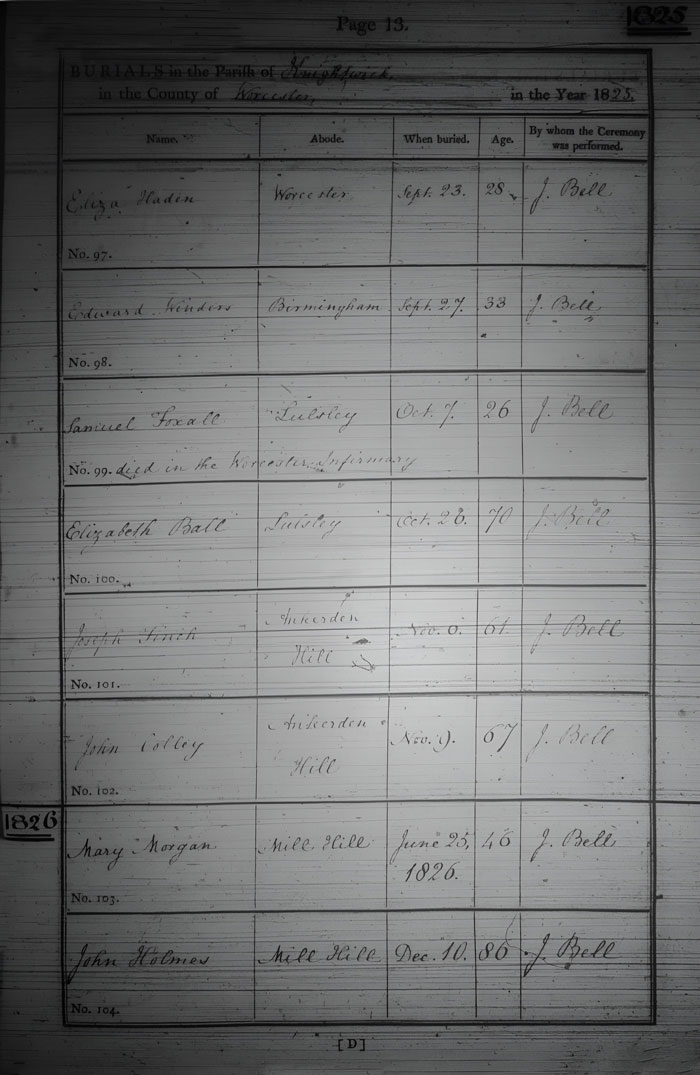 Page 13.
1825
BURIALS in the Parish of Knightwick
in the County of Worcester in the Year 1825.
Name. Abode. When buried. Age. By whom the Ceremony was performed.
Eliza Haden Worcester Sept. 23. 28 J. Bell
No. 97.
Edward Winders Birmingham Sept. 27. 33 J. Bell
No. 98.
Samuel Foxall Lulsley Oct. 7. 26 J. Bell
No. 99. died in the Worcester Infirmary
Elizabeth Ball Lulsley Oct. 26. 70 J. Bell
No. 100.
Joseph Ankerden Nov. 6. 61 J. Bell
Hill
No. 101.
John Colley Ankerden Nov. 9. 67 J. Bell
Hill
No. 102.
1826
Mary Morgan Mill Hill June 25, 46 J. Bell
1826.
No. 103.
John Holmes Mill Hill Dec. 10. 86 J. Bell
No. 104.
[D]